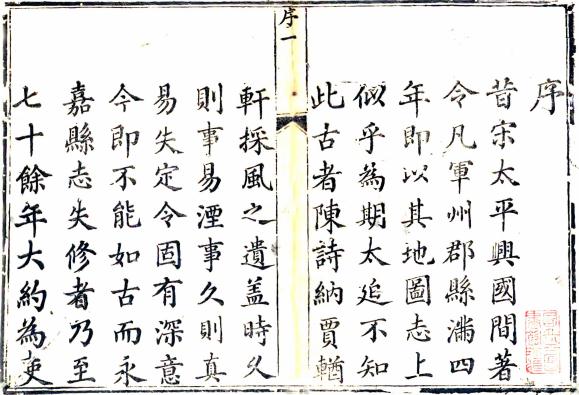 序
昔宋太平興國間著
令凡軍州郡縣滿四
年即以其地圖志上
似乎為期太迫不知
此古者陳詩納賈輶
序一
軒採風之遺盖時久
則事易湮事久則真
易失定令固有深意
今即不能如古而永
嘉縣志失修者乃至
七十餘年大約為吏